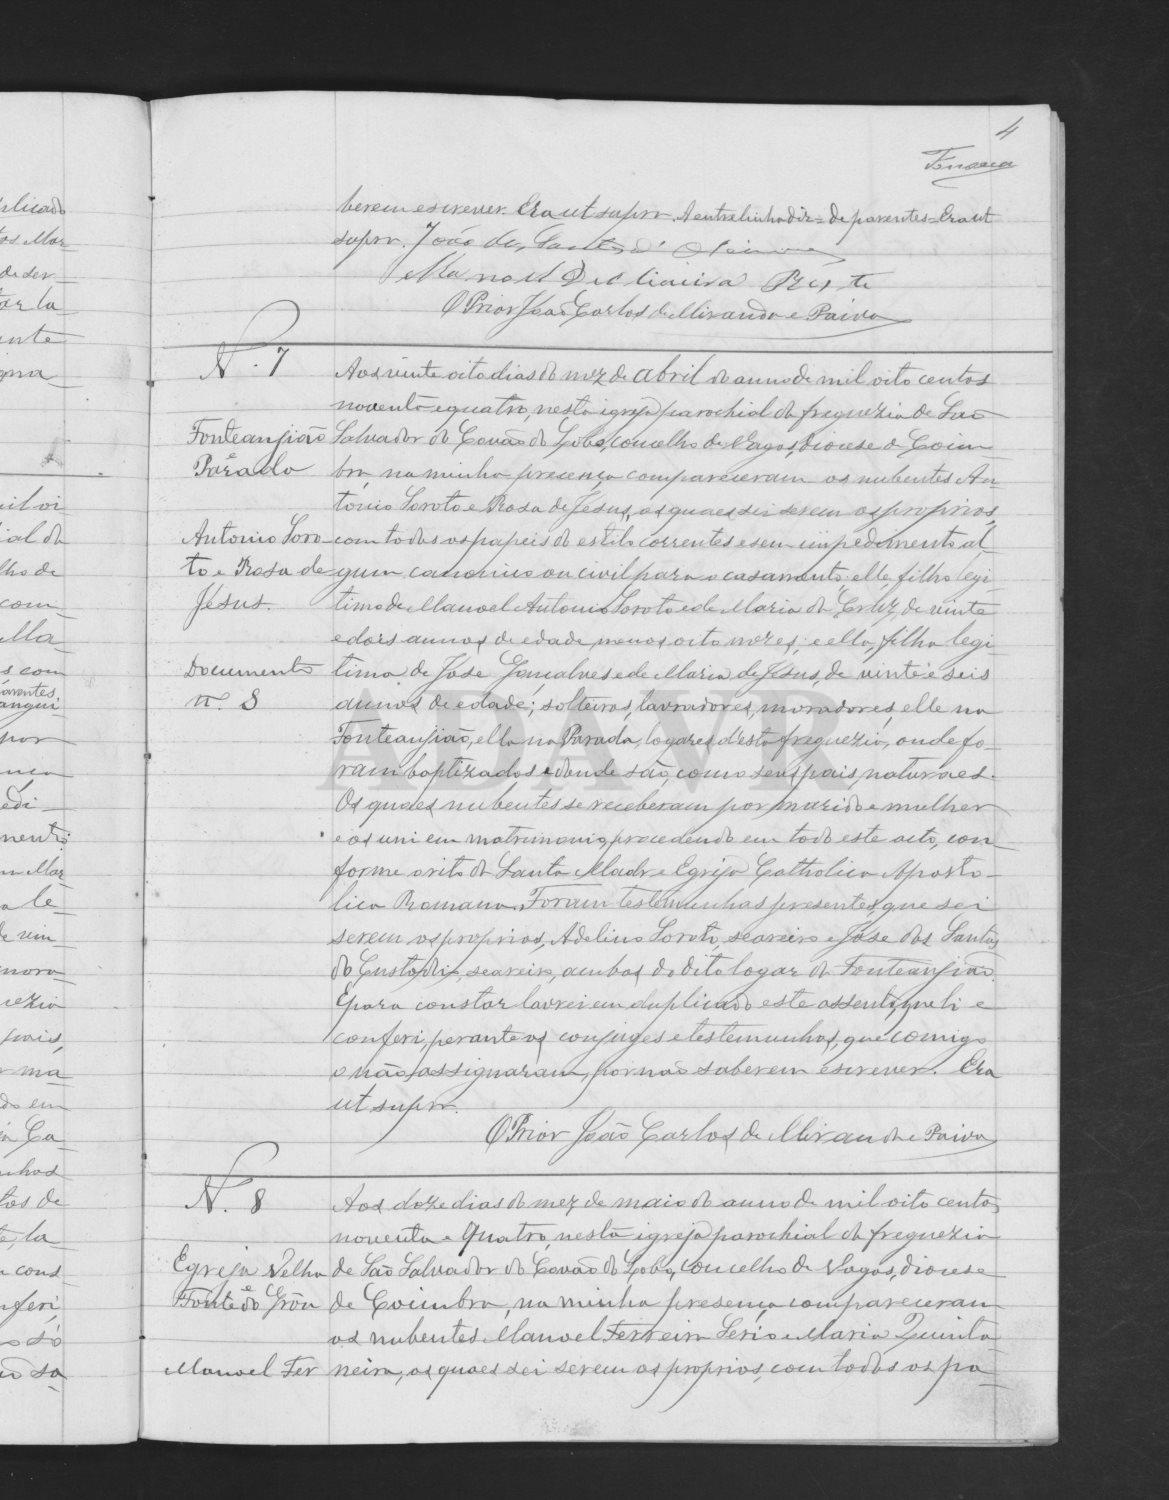 4
Fonseca
berem escrever. Era ut supra. A entrelinha diz = de parentes = Era ut
supra. João dos Santos d'Oliveira
Manoel De Oliveira
O Prior João Carlos de Miranda e Paiva
N. 7
Aos vinte oito dias do mez de abril do anno de mil oito centos
noventa e quatro, nesta igreja parochial da freguezia de São
Fonteanjião
Salvador do Covão do Lobo, concelho de Vagos, diocese de Coim-
e Parada
bra, na minha presença compareceram os nubentes An-
tonio Loroto e Rosa de Jesus, os quaes sei serem os proprios,
Antonio Loro-
com todos os papeis do estilo correntes e sem impedimento al-
to e Rosa de
gum canonico ou civil para o casamento; elle, filho legi-
Jesus.
timo de Manoel Antonio Loroto e de Maria da Cruz, de vinte
e dois annos de edade, menos oito mezes; e ella, filha legi-
Documento
tima de Jose Gonçalves e de Maria de Jesus, de vinte e seis
n. 8
annos de edade; solteiros, lavradores, moradores, elle na
Fonteanjião, ella na Parada, logares d'esta freguezia, onde fo-
ram baptizados e donde são, como seus pais, naturaes.
Os quaes nubentes se receberam por marido e mulher
e os uni em matrimonio, procedendo em todo este acto, con-
forme o rito da Santa Madre Egreja Catholica Aposto-
lica Romana. Foram testemunhas presentes, que sei
serem os proprios, Adelino Loroto, seareiro e Jose dos Santos
do Custodio, seareiro, ambos do dito logar da Fonteanjião.
E para constar lavrei em duplicado este assento, que li e
conferi, perante os conjuges e testemunhas, que comigo
o não assignaram, por não saberem escrever. Era
ut supra.
O Prior João Carlos de Miranda e Paiva
N. 8
Aos doze dias do mez de maio do anno de mil oito centos
noventa e quatro, nesta igreja parochial da freguezia
Egreja Velha
de São Salvador do Covão do Lobo, concelho de Vagos, diocese
e Fonte do Grou
de Coimbra, na minha presença compareceram
os nubentes Manoel Ferreira Serio e Maria Quinta
Manoel Fer
neira, os quaes sei serem os proprios, com todos os pa-
ADAVR